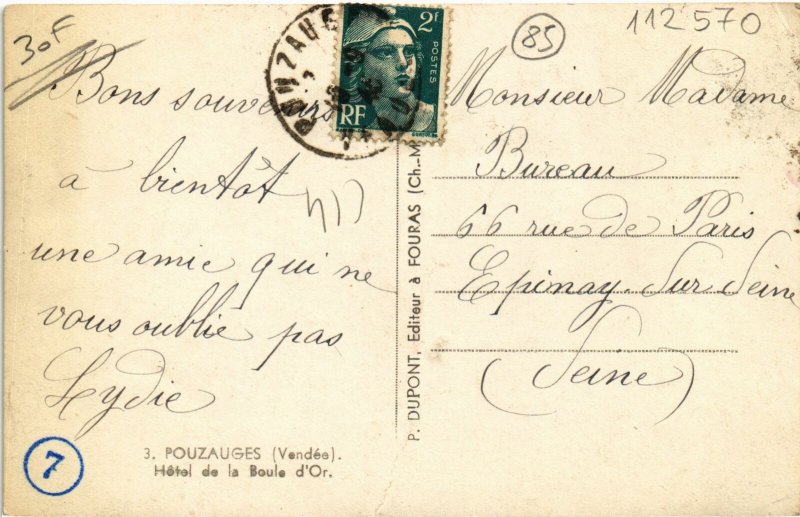 30F
Bons souvenirs
à bientôt
une amie qui ne
vous oublie pas
Lydie
3. POUZAUGES (Vendée).
Hôtel de la Boule d'Or.
7
POUZAUGES
2F
POSTES
RF
P. DUPONT, Editeur à FOURAS (Ch.-M
85
112 570
Monsieur Madame
Bureau
66 rue de Paris
Epinay-Sur Seine
(Seine)